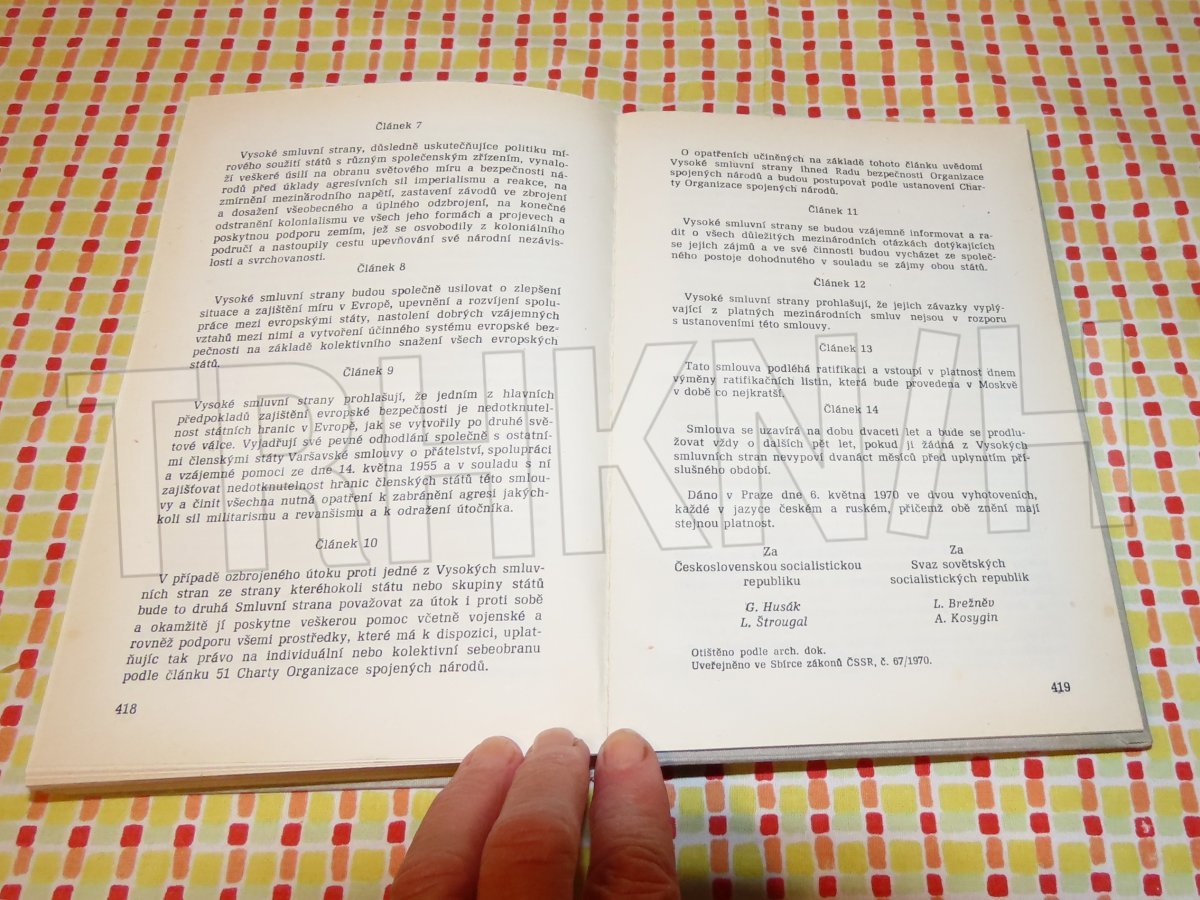 Článek 7
Vysoké smluvní strany, důsledně uskutečňujíce politiku mí-
rového soužití států s různým společenským zřízením, vynalo-
ží veškeré úsilí na obranu světového míru a bezpečnosti ná-
rodů před úklady agresívních sil imperialismu a reakce, na
zmírnění mezinárodního napětí, zastavení závodů ve zbrojení
a dosažení všeobecného a úplného odzbrojení, na konečné
odstranění kolonialismu ve všech jeho formách a projevech a
poskytnou podporu zemím, jež se osvobodily z koloniálního
područí a nastoupily cestu upevňování své národní nezávis-
losti a svrchovanosti.
Článek 8
Vysoké smluvní strany budou společně usilovat o zlepšení
situace a zajištění míru v Evropě, upevnění a rozvíjení spolu-
práce mezi evropskými státy, nastolení dobrých vzájemných
vztahů mezi nimi a vytvoření účinného systému evropské bez-
pečnosti na základě kolektivního snažení všech evropských
států.
Článek 9
Vysoké smluvní strany prohlašují, že jedním z hlavních
předpokladů zajištění evropské bezpečnosti je nedotknutel-
nost státních hranic v Evropě, jak se vytvořily po druhé svě-
tové válce. Vyjadřují své pevné odhodlání společně s ostatní-
mi členskými státy Varšavské smlouvy o přátelství, spolupráci
a vzájemné pomoci ze dne 14. května 1955 a v souladu s ní
zajišťovat nedotknutelnost hranic členských států této smlou-
vy a činit všechna nutná opatření k zabránění agresi jakých-
koli sil militarismu a revanšismu a k odražení útočníka.
Článek 10
V případě ozbrojeného útoku proti jedné z Vysokých smluv-
ních stran ze strany kteréhokoli státu nebo skupiny států
bude to druhá Smluvní strana považovat za útok i proti sobě
a okamžitě jí poskytne veškerou pomoc včetně vojenské a
rovněž podporu všemi prostředky, které má k dispozici, uplat-
ňujíc tak právo na individuální nebo kolektivní sebeobranu
podle článku 51 Charty Organizace spojených národů.
418
O opatřeních učiněných na základě tohoto článku uvědomí
Vysoké smluvní strany ihned Radu bezpečnosti Organizace
spojených národů a budou postupovat podle ustanovení Char-
ty Organizace spojených národů.
Článek 11
Vysoké smluvní strany se budou vzájemně informovat a ra-
dit o všech důležitých mezinárodních otázkách dotýkajících
se jejich zájmů a ve své činnosti budou vycházet ze společ-
ného postoje dohodnutého v souladu se zájmy obou států.
Článek 12
Vysoké smluvní strany prohlašují, že jejich závazky vyplý-
vající z platných mezinárodních smluv nejsou v rozporu
s ustanoveními této smlouvy.
Článek 13
Tato smlouva podléhá ratifikaci a vstoupí v platnost dnem
výměny ratifikačních listin, která bude provedena v Moskvě
v době co nejkratší.
Článek 14
Smlouva se uzavírá na dobu dvaceti let a bude se prodlu-
žovat vždy o dalších pět let, pokud ji žádná z Vysokých
smluvních stran nevypoví dvanáct měsíců před uplynutím pří-
slušného období.
Dáno v Praze dne 6. května 1970 ve dvou vyhotoveních,
každé v jazyce českém a ruském, přičemž obě znění mají
stejnou platnost.
Za
Československou socialistickou
republiku
G. Husák
L. Štrougal
Za
Svaz sovětských
socialistických republik
L. Brežněv
A. Kosygin
Otištěno podle arch. dok.
Uveřejněno ve Sbírce zákonů ČSSR, č. 67/1970.
419
TRHKNIH